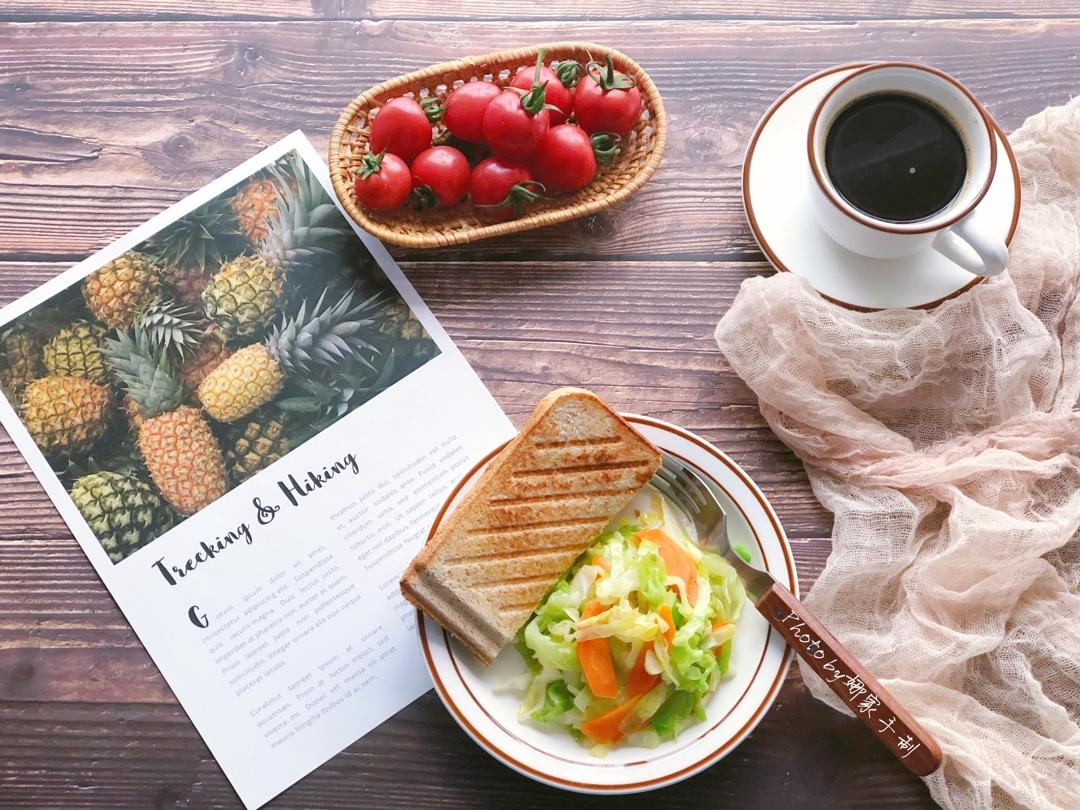 Trecking & Hiking
Vivamus justo dui, sollicitudin vel nulla
et, auctor sodales ante. Fusce sodales
interdum urna, sed elementum purus
tobortis non. Ut sapien tellus,
eget nisi dapibus,
Suspendisse feugiat
G
orem ipsum dolor sit amet,
consectetur adipiscing elit. Suspendisse
quis iaculis magna. Duis lectus justo,
imperdiet at pharetra non, auctor at quam.
Proin laoreet justo non pellentesque
sollicitudin. Integer ornare elit non neque
placerat iaculis.
Curabitur laoreet ipsum at ornare
accumsan. Proin at luctus metus, sed
viverra mi. Donec vel massa sit amet
mauris fringilla finibus id ac sem.
Lorem
Photo by 娜家手制